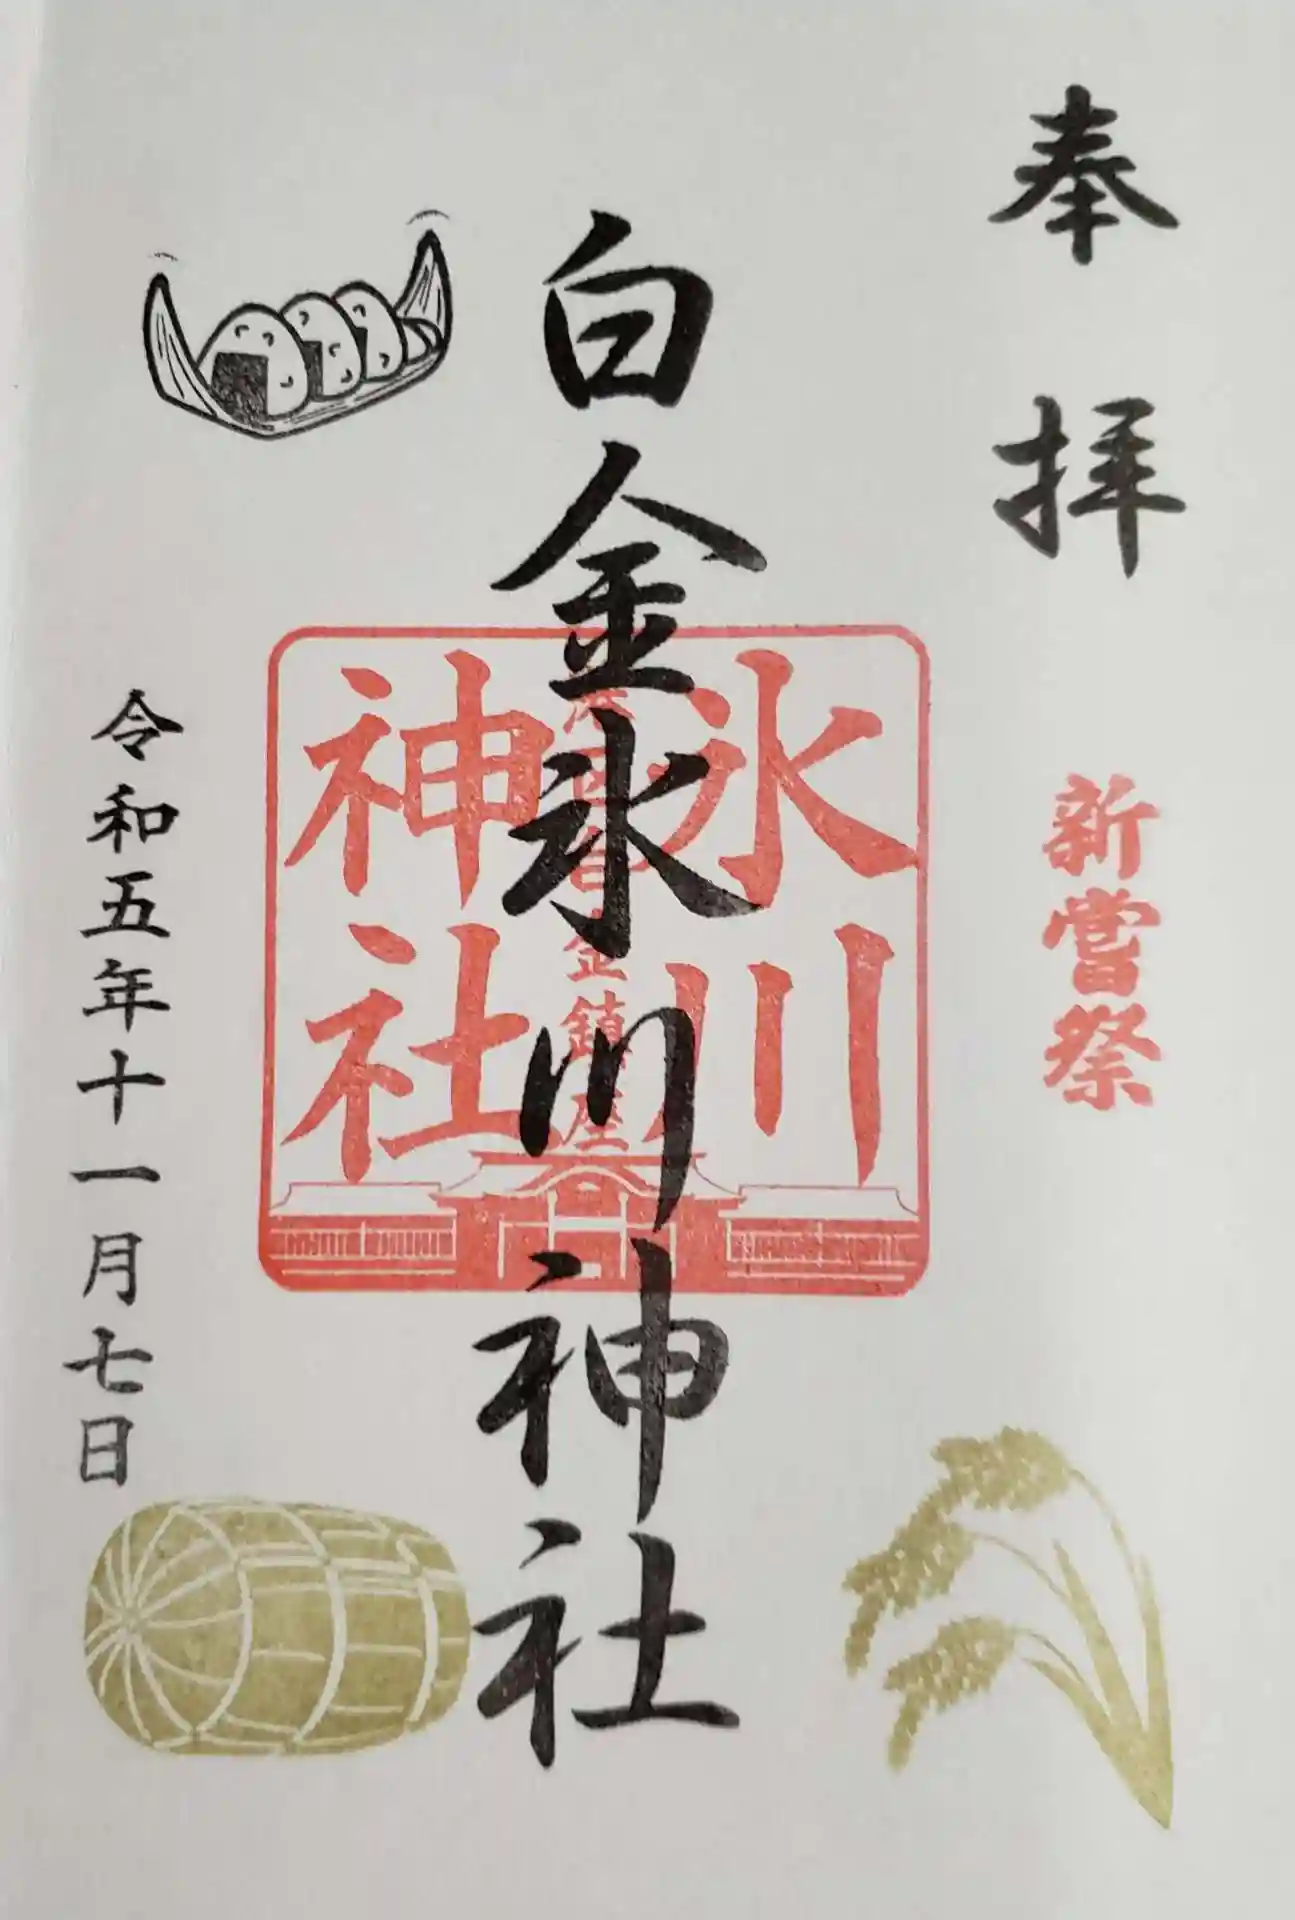 奉拝
新嘗祭
白金氷川神社
氷川
神社
港区白金鎮座
令和五年十一月七日